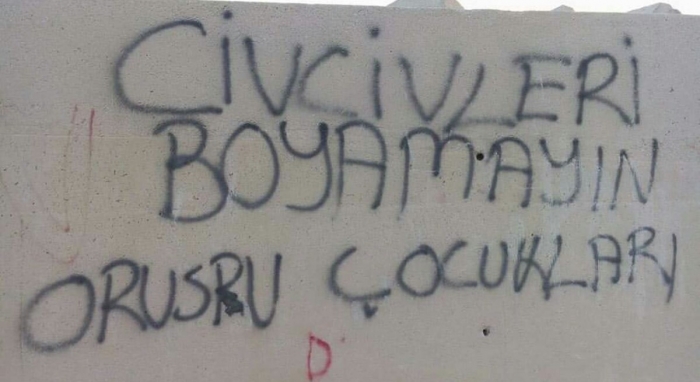 CİVCİVLERİ
BOYAMAYIN
ORUSRU ÇOCUKLARI
D